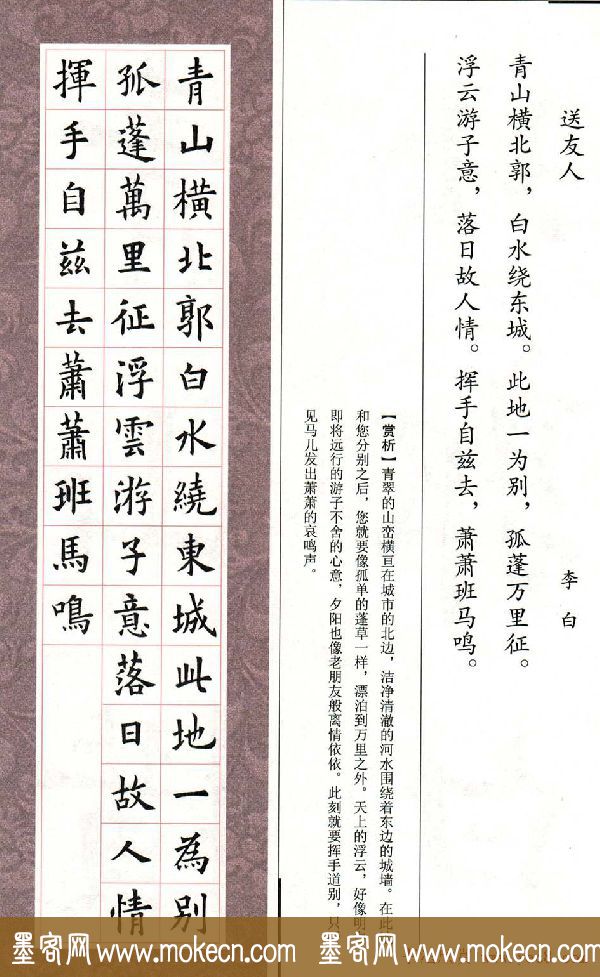 送友人
李白
青山横北郭，白水绕东城。此地一为别，孤蓬万里征。
浮云游子意，落日故人情。挥手自兹去，萧萧班马鸣。
【赏析】青翠的山峦横亘在城市的北边，洁净清澈的河水围绕着东边的城墙。在此
和您分别之后，您就要像孤单的蓬草一样，漂泊到万里之外。天上的浮云，好像明
即将远行的游子不舍的心意，夕阳也像老朋友般离情依依。此刻就要挥手道别，只
见马儿发出萧萧的哀鸣声。
青山橫北郭白水繞東城此地一為別
孤蓬萬里征浮雲游子意落日故人情
揮手自茲去蕭蕭班馬鳴
墨客网 www.mokecn.com 墨客网 www.mokecn.com